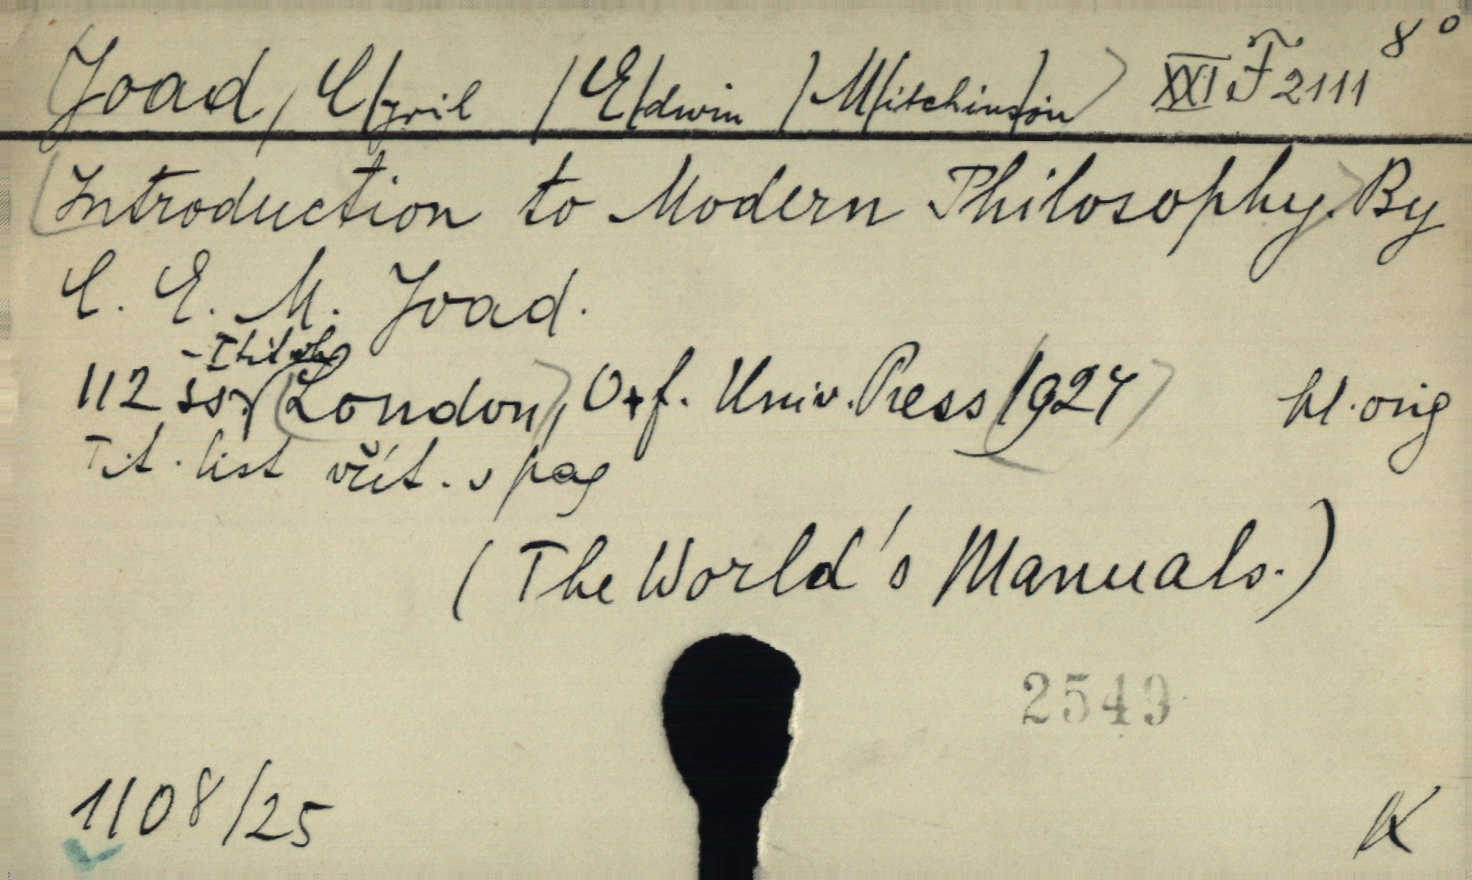 Joad, C/yril /E/dwin /M/itchinson/ XXI F 2111 8°
Introduction to Modern Philosophy. By
C. E. M. Joad.
112 ss. London, Oxf. Univ. Press 1924 hl. orig
Tit. list vřít. v pag
(The World's Manuals.)
2549
1108/25